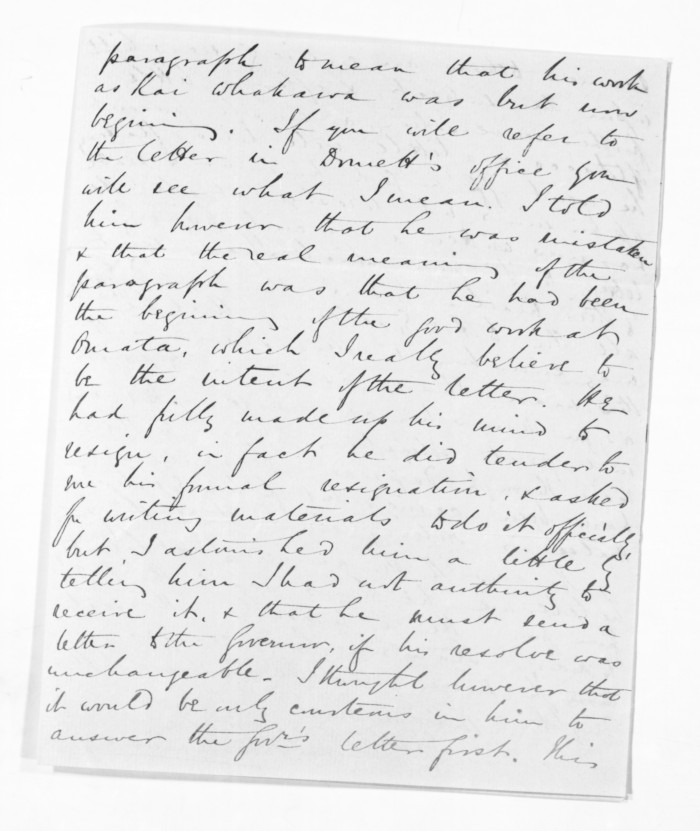 paragraph to mean that his work
as Kai whakawa was but now
begining. If you will refer to
the letter in Domett's office you
will see what I mean. I told
him however that he was mistaken
& that the real meaning of the
paragraph was that he had been
the begining of the good work at
Omata, which I really believe to
be the intent of the letter. He
had fully made up his mind to
resign, in fact he did tender to
me his formal resignation, & asked
for writing materials to do it officially
but I astonished him a little by
telling him I had not authority to
receive it, & that he must send a
letter to the Governor, if his resolve was
unchangeable. I thought however that
it would be only courteous in him to
answer the Govr's letter first. This